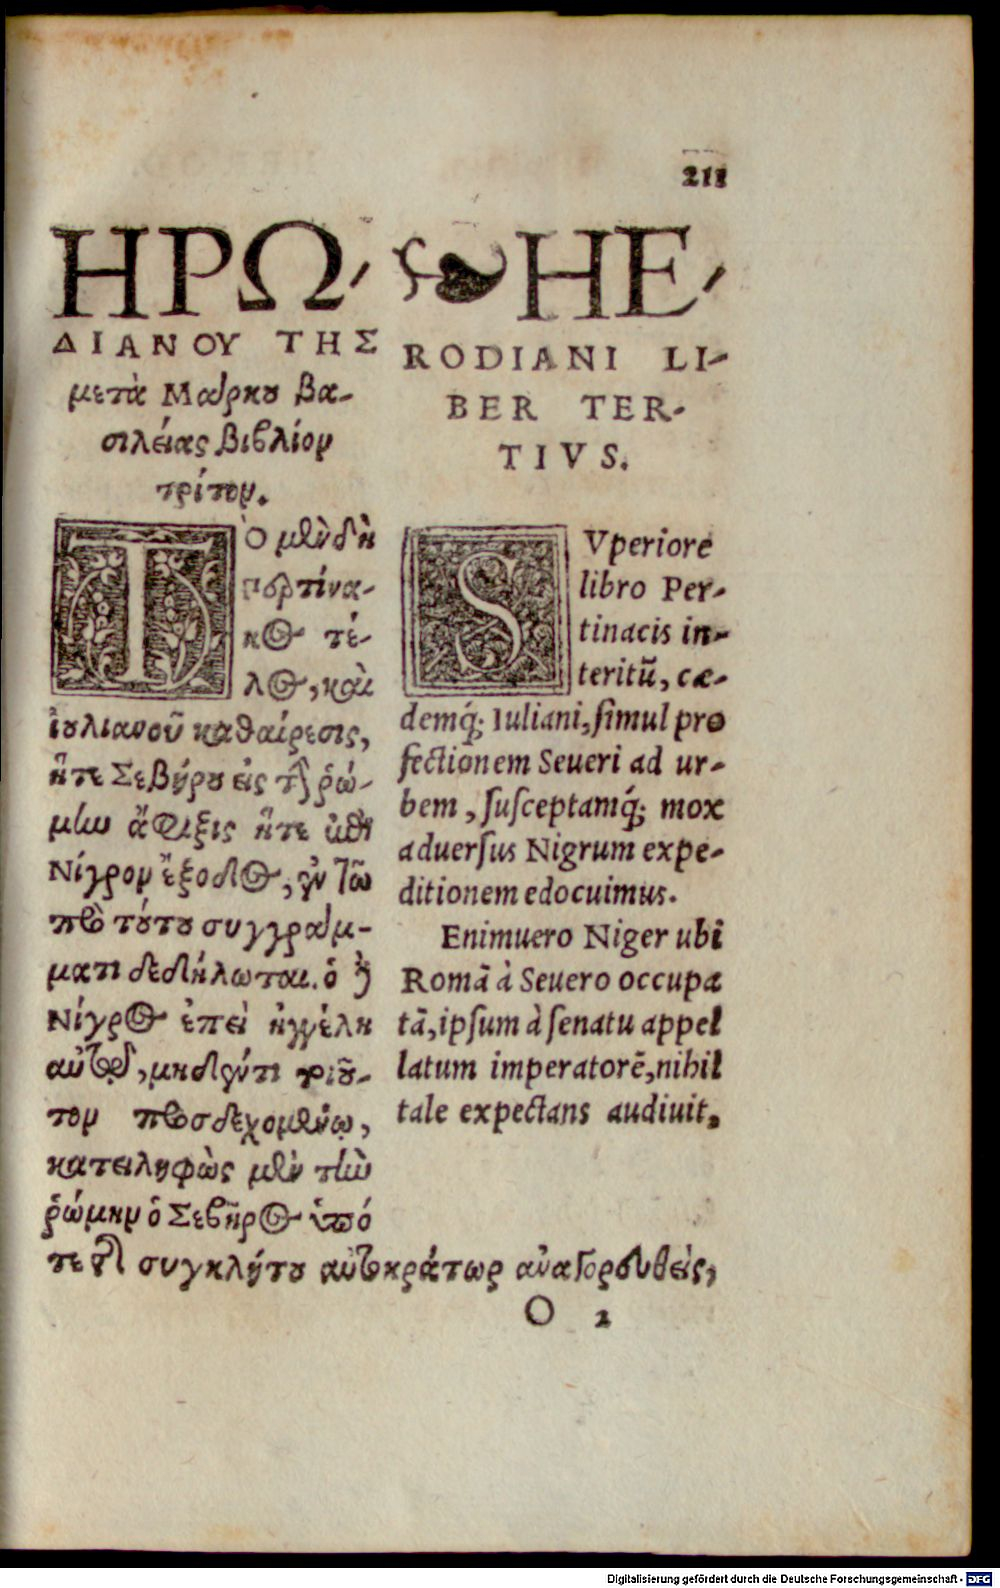 211
ΗΡΩ-
ΔΙΑΝΟΥ ΤΗΣ
μετὰ Μάρκου βα-
σιλείας βιβλίον
τρίτον.
ΤὸΜὲν δὴ
περτίνα-
κος τέ-
λος, καὶ
ἰουλιανοῦ καθαίρεσις,
ἥτε Σεβήρου εἰς τὴν ῥώ-
μην ἄφιξις ἥτε ἐπὶ
Νίγρον ἔξοδος, ἐν τῷ
πρὸ τούτου συγγράμ-
ματι δεδήλωται. ὁ δὲ
Νίγρος ἐπεὶ ἠγγέλη
αὐτῷ, μηδέν τι τοιοῦ-
τον προσδεχομένῳ,
κατειληφὼς μὲν τὴν
ῥώμην ὁ Σεβῆρος ὑπό
τε τῆς συγκλήτου αὐτοκράτωρ ἀναγορευθεὶς,
HE-
RODIANI LI-
BER TER-
TIVS.
SVperiore
libro Per-
tinacis in-
teritũ, cæ-
demq́; Iuliani, simul pro
fectionem Seueri ad ur-
bem, susceptamq́; mox
aduersus Nigrum expe-
ditionem edocuimus.
Enimuero Niger ubi
Romã à Seuero occupa
tã, ipsum à senatu appel
latum imperatorẽ, nihil
tale expectans audiuit,
O 2
Digitalisierung gefördert durch die Deutsche Forschungsgemeinschaft - DFG